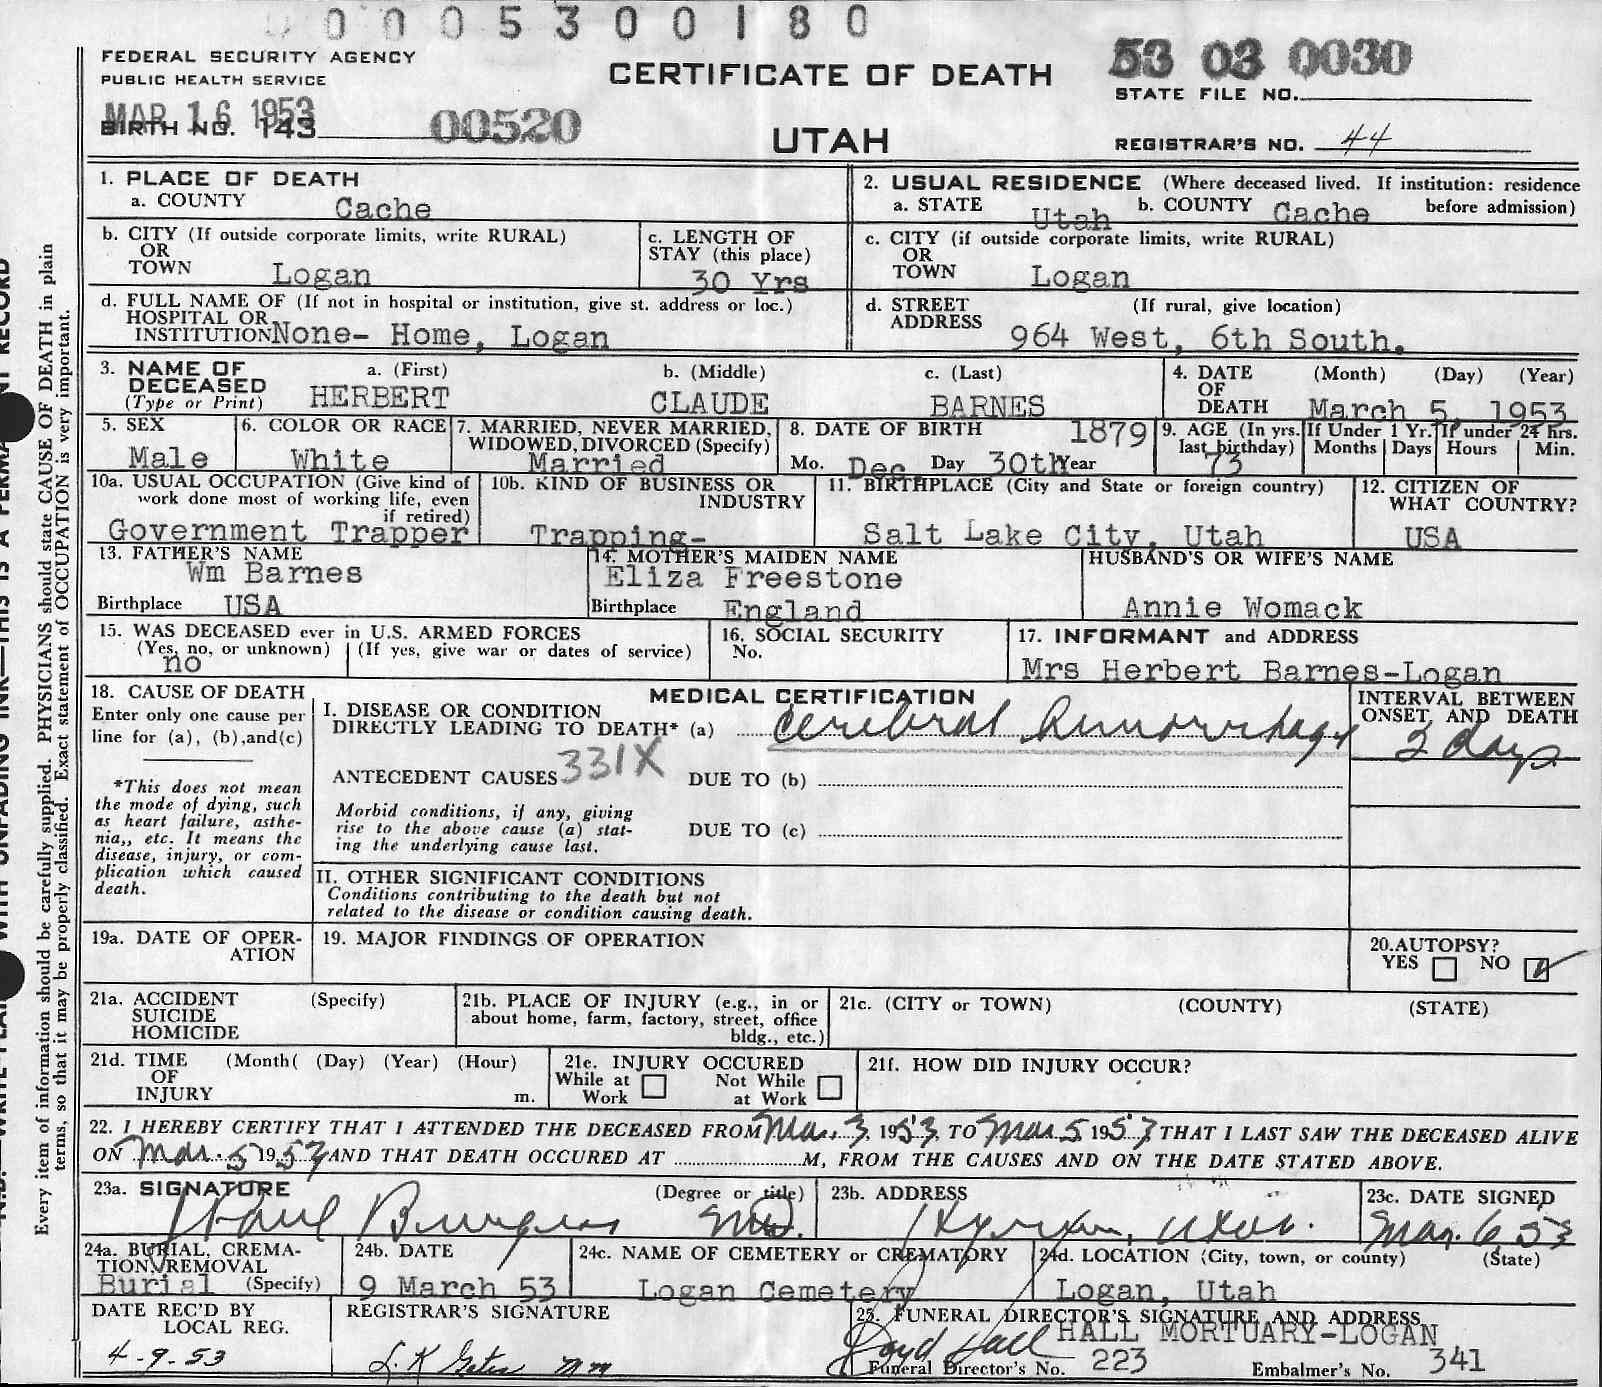 0 0 0 5 3 0 0 1 8 0
FEDERAL SECURITY AGENCY
PUBLIC HEALTH SERVICE
MAR 16 1953
BIRTH NO. 143
00520
CERTIFICATE OF DEATH
UTAH
53 03 0030
STATE FILE NO.
REGISTRAR'S NO. 44
1. PLACE OF DEATH
a. COUNTY Cache
2. USUAL RESIDENCE (Where deceased lived. If institution: residence before admission)
a. STATE Utah b. COUNTY Cache
b. CITY (If outside corporate limits, write RURAL)
OR
TOWN Logan
c. LENGTH OF
STAY (this place)
30 Yrs
c. CITY (if outside corporate limits, write RURAL)
OR
TOWN Logan
d. FULL NAME OF (If not in hospital or institution, give st. address or loc.)
HOSPITAL OR
INSTITUTION None- Home, Logan
d. STREET (If rural, give location)
ADDRESS 964 West, 6th South.
3. NAME OF
DECEASED
(Type or Print)
a. (First) HERBERT
b. (Middle) CLAUDE
c. (Last) BARNES
4. DATE (Month) (Day) (Year)
OF
DEATH March 5, 1953
5. SEX
Male
6. COLOR OR RACE
White
7. MARRIED, NEVER MARRIED,
WIDOWED, DIVORCED (Specify)
Married
8. DATE OF BIRTH 1879
Mo. Dec Day 30th Year
9. AGE (In yrs. last birthday)
73
If Under 1 Yr.
Months Days
If under 24 hrs.
Hours Min.
10a. USUAL OCCUPATION (Give kind of
work done most of working life, even
if retired)
Government Trapper
10b. KIND OF BUSINESS OR
INDUSTRY
Trapping-
11. BIRTHPLACE (City and State or foreign country)
Salt Lake City, Utah
12. CITIZEN OF
WHAT COUNTRY?
USA
13. FATHER'S NAME
Wm Barnes
Birthplace USA
14. MOTHER'S MAIDEN NAME
Eliza Freestone
Birthplace England
HUSBAND'S OR WIFE'S NAME
Annie Womack
15. WAS DECEASED ever in U.S. ARMED FORCES
(Yes, no, or unknown) (If yes, give war or dates of service)
no
16. SOCIAL SECURITY
No.
17. INFORMANT and ADDRESS
Mrs Herbert Barnes-Logan
18. CAUSE OF DEATH
Enter only one cause per
line for (a), (b),and(c)
*This does not mean
the mode of dying, such
as heart failure, asthe-
nia,, etc. It means the
disease, injury, or com-
plication which caused
death.
MEDICAL CERTIFICATION
I. DISEASE OR CONDITION
DIRECTLY LEADING TO DEATH* (a) Cerebral
INTERVAL BETWEEN
ONSET AND DEATH
days
ANTECEDENT CAUSES 331X
DUE TO (b)
Morbid conditions, if any, giving
rise to the above cause (a) stat-
ing the underlying cause last.
DUE TO (c)
II. OTHER SIGNIFICANT CONDITIONS
Conditions contributing to the death but not
related to the disease or condition causing death.
19a. DATE OF OPER-
ATION
19. MAJOR FINDINGS OF OPERATION
20. AUTOPSY?
YES NO
21a. ACCIDENT (Specify)
SUICIDE
HOMICIDE
21b. PLACE OF INJURY (e.g., in or
about home, farm, factory, street, office
bldg., etc.)
21c. (CITY or TOWN) (COUNTY) (STATE)
21d. TIME (Month( (Day) (Year) (Hour)
OF
INJURY m.
21e. INJURY OCCURED
While at Work Not While at Work
21f. HOW DID INJURY OCCUR?
22. I HEREBY CERTIFY THAT I ATTENDED THE DECEASED FROM Mar. 3, 1953, TO Mar. 5 1953, THAT I LAST SAW THE DECEASED ALIVE
ON Mar. 5 1953 AND THAT DEATH OCCURED AT M, FROM THE CAUSES AND ON THE DATE STATED ABOVE.
23a. SIGNATURE (Degree or title)
Burgess MD.
23b. ADDRESS
Hyrum, Utah.
23c. DATE SIGNED
Mar. 6 53
24a. BURIAL, CREMA-
TION, REMOVAL
Burial (Specify)
24b. DATE
9 March 53
24c. NAME OF CEMETERY or CREMATORY
Logan Cemetery
24d. LOCATION (City, town, or county) (State)
Logan, Utah
DATE REC'D BY
LOCAL REG.
4-9-53
REGISTRAR'S SIGNATURE
25. FUNERAL DIRECTOR'S SIGNATURE AND ADDRESS
Hall HALL MORTUARY-LOGAN
Funeral Director's No. 223 Embalmer's No. 341
Every item of information should be carefully supplied. PHYSICIANS should state CAUSE OF DEATH in plain
terms, so that it may be properly classified. Exact statement of OCCUPATION is very important.